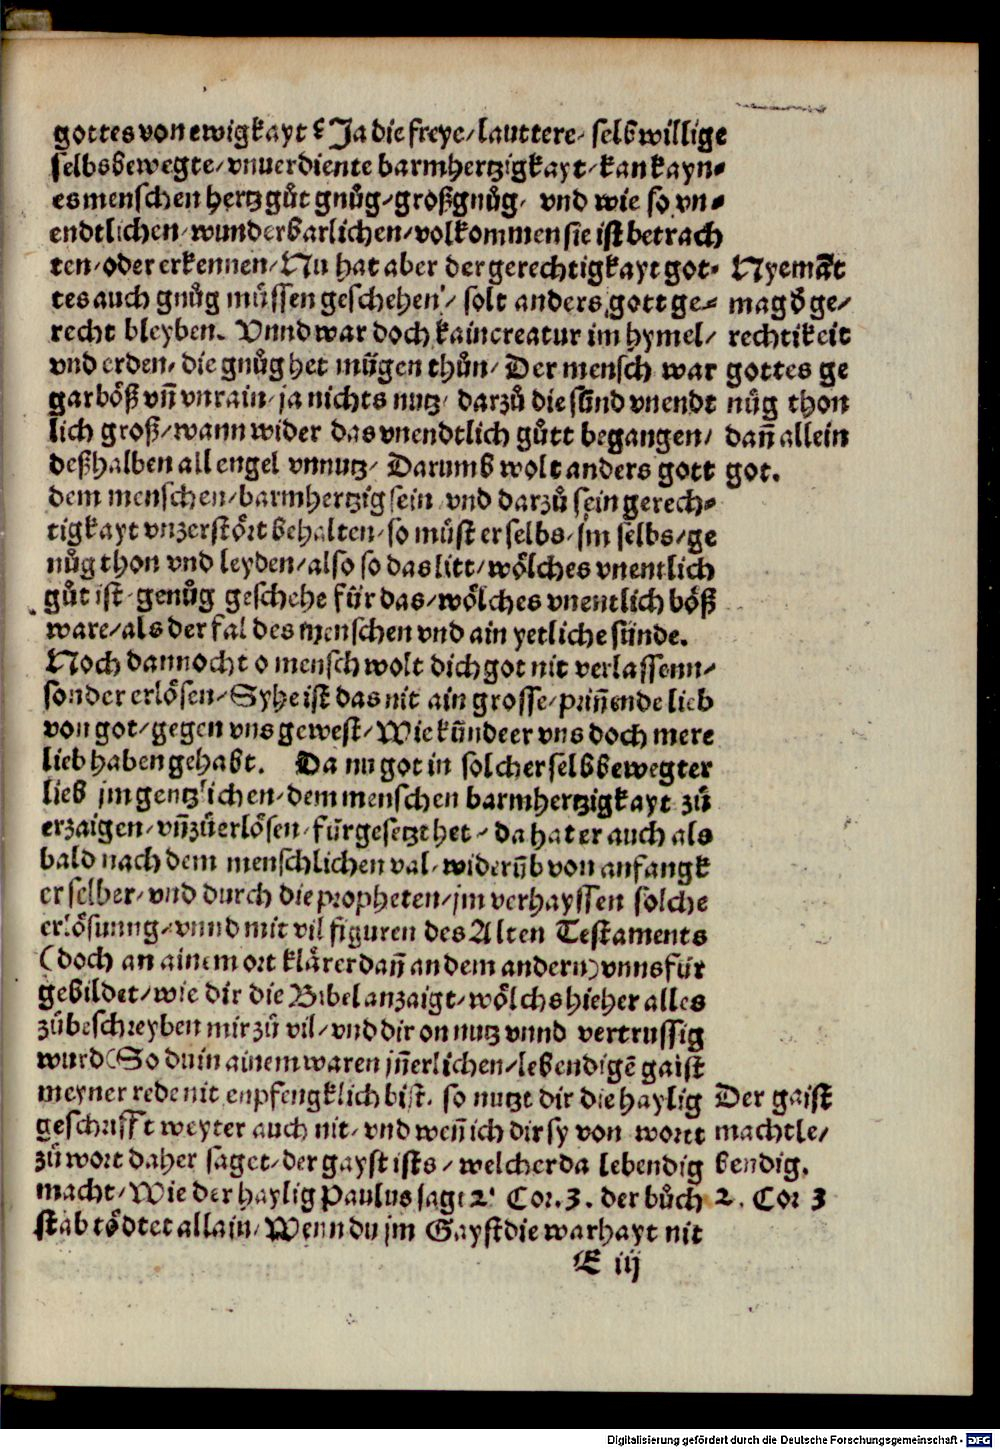 gottes von ewigkayt? Ja die freye/ lauttere/ selbwillige
selbsbewegte/ vnuerdiente barmhertzigkayt/ kan kayn-
es menschen hertz gůt gnůg/ großgnůg/ vnd wie so vn-
endtlichen/ wunderbarlichen/ volkommen sie ist betrach
ten/ oder erkennen/ Nu hat aber der gerechtigkayt got-
tes auch gnůg müssen geschehen/ solt anders gott ge-
recht bleyben. Vnnd war doch kain creatur im hymel/
vnd erden/ die gnůg het mügen thůn/ Der mensch war
gar böß vñ vnrain/ ja nichts nutz/ darzů die sünd vnendt
lich groß/ wann wider das vnendtlich gůtt begangen/
deßhalben all engel vnnutz/ Darumb wolt anders gott
dem menschen/ barmhertzig sein vnd darzů sein gerech-
tigkayt vnzerstört behalten/ so můst er selbs/ jm selbs/ ge
nůg thon vnd leyden/ also so das litt/ wölches vnentlich
gůt ist/ genůg geschehe für das/ wölches vnentlich böß
ware/ als der fal des menschen vnd ain yetliche sünde.
Noch dannocht o mensch wolt dich got nit verlassenn/
sonder erlösen/ Syhe ist das nit ain grosse/ priñende lieb
von got/ gegen vns gewest/ Wie kündeer vns doch mere
lieb haben gehabt. Da nu got in solcher selbbewegter
lieb jm gentzlichen/ dem menschen barmhertzigkayt zů
erzaigen/ vñ zů erlösen/ fürgesetzt het/ da hat er auch als
bald nach dem menschlichen val/ widerũb von anfangk
er selber/ vnd durch die propheten/ jm verhayssen solche
erlösunng/ vnnd mit vil figuren des Alten Testaments
(doch an ainem ort klärer dañ an dem andern) vnns für
gebildet/ wie dir die Bibel anzaigt/ wölchs hieher alles
zů beschreyben mir zů vil/ vnd dir on nutz vnnd vertrussig
wurd (So du in ainem waren jñerlichen/ lebendigẽ gaist
meyner rede nit enpfengklich bist. so nutzt dir die haylig
geschrifft weyter auch nit/ vnd weñ ich dir sy von wortt
zů wort daher saget/ der gayst ists/ welcher da lebendig
macht/ Wie der haylig Paulus sagt 2. Cor. 3. der bůch
stab tödtet allain/ Wenn du jm Gayst die warhayt nit
E iij
Nyemãt
mag d ge/
rechtikeit
gottes ge
nůg thon
dañ allein
got.
Der gaist
macht le/
bendig.
2. Cor 3
Digitalisierung gefördert durch die Deutsche Forschungsgemeinschaft - DFG